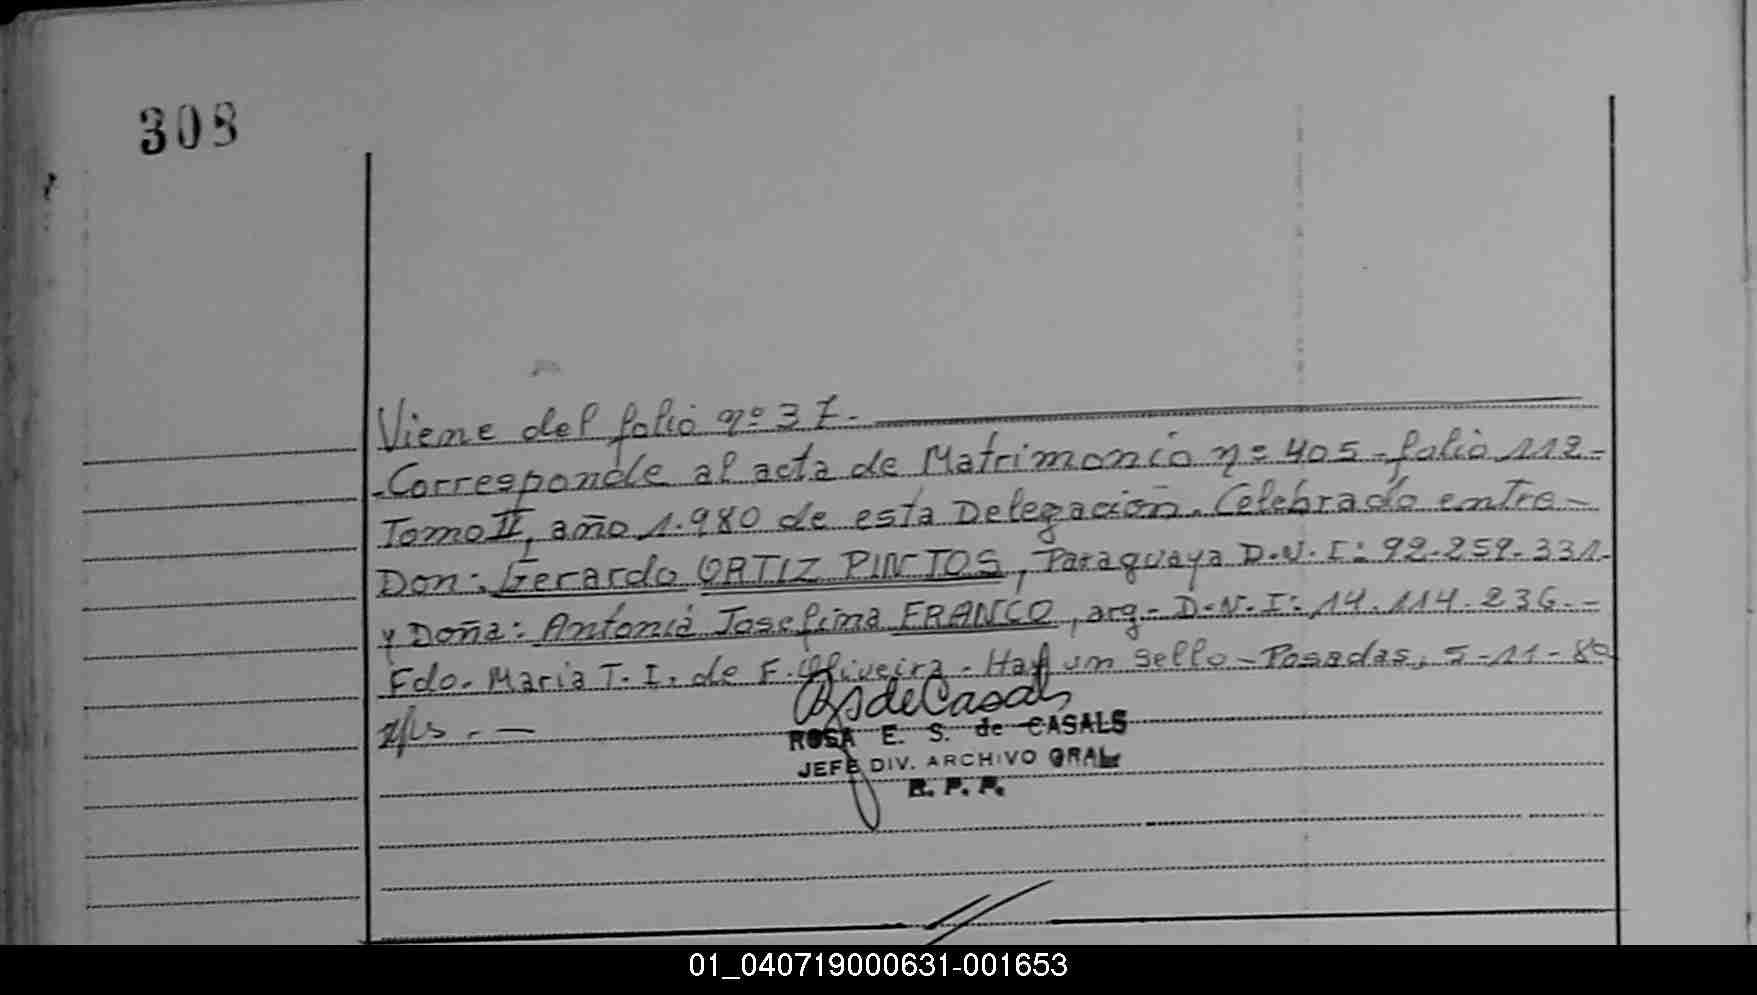 308
Viene del folio nº 37.-
-Corresponde al acta de Matrimonio nº 405-folio 112-
Tomo II, año 1.980 de esta Delegación. Celebrado entre-
Don: Gerardo ORTIZ PINTOS, Paraguaya D.N.I: 92.259.331-
y Doña: Antonia Josefina FRANCO, arg- D.N.I: 14.114.236.-
Fdo. Maria T. I. de F. Oliveira - Hay un Sello - Posadas, 5-11-80
ROSA E. S. de CASALS
JEFE DIV. ARCHIVO GRAL
R. P. P.
01_040719000631-001653